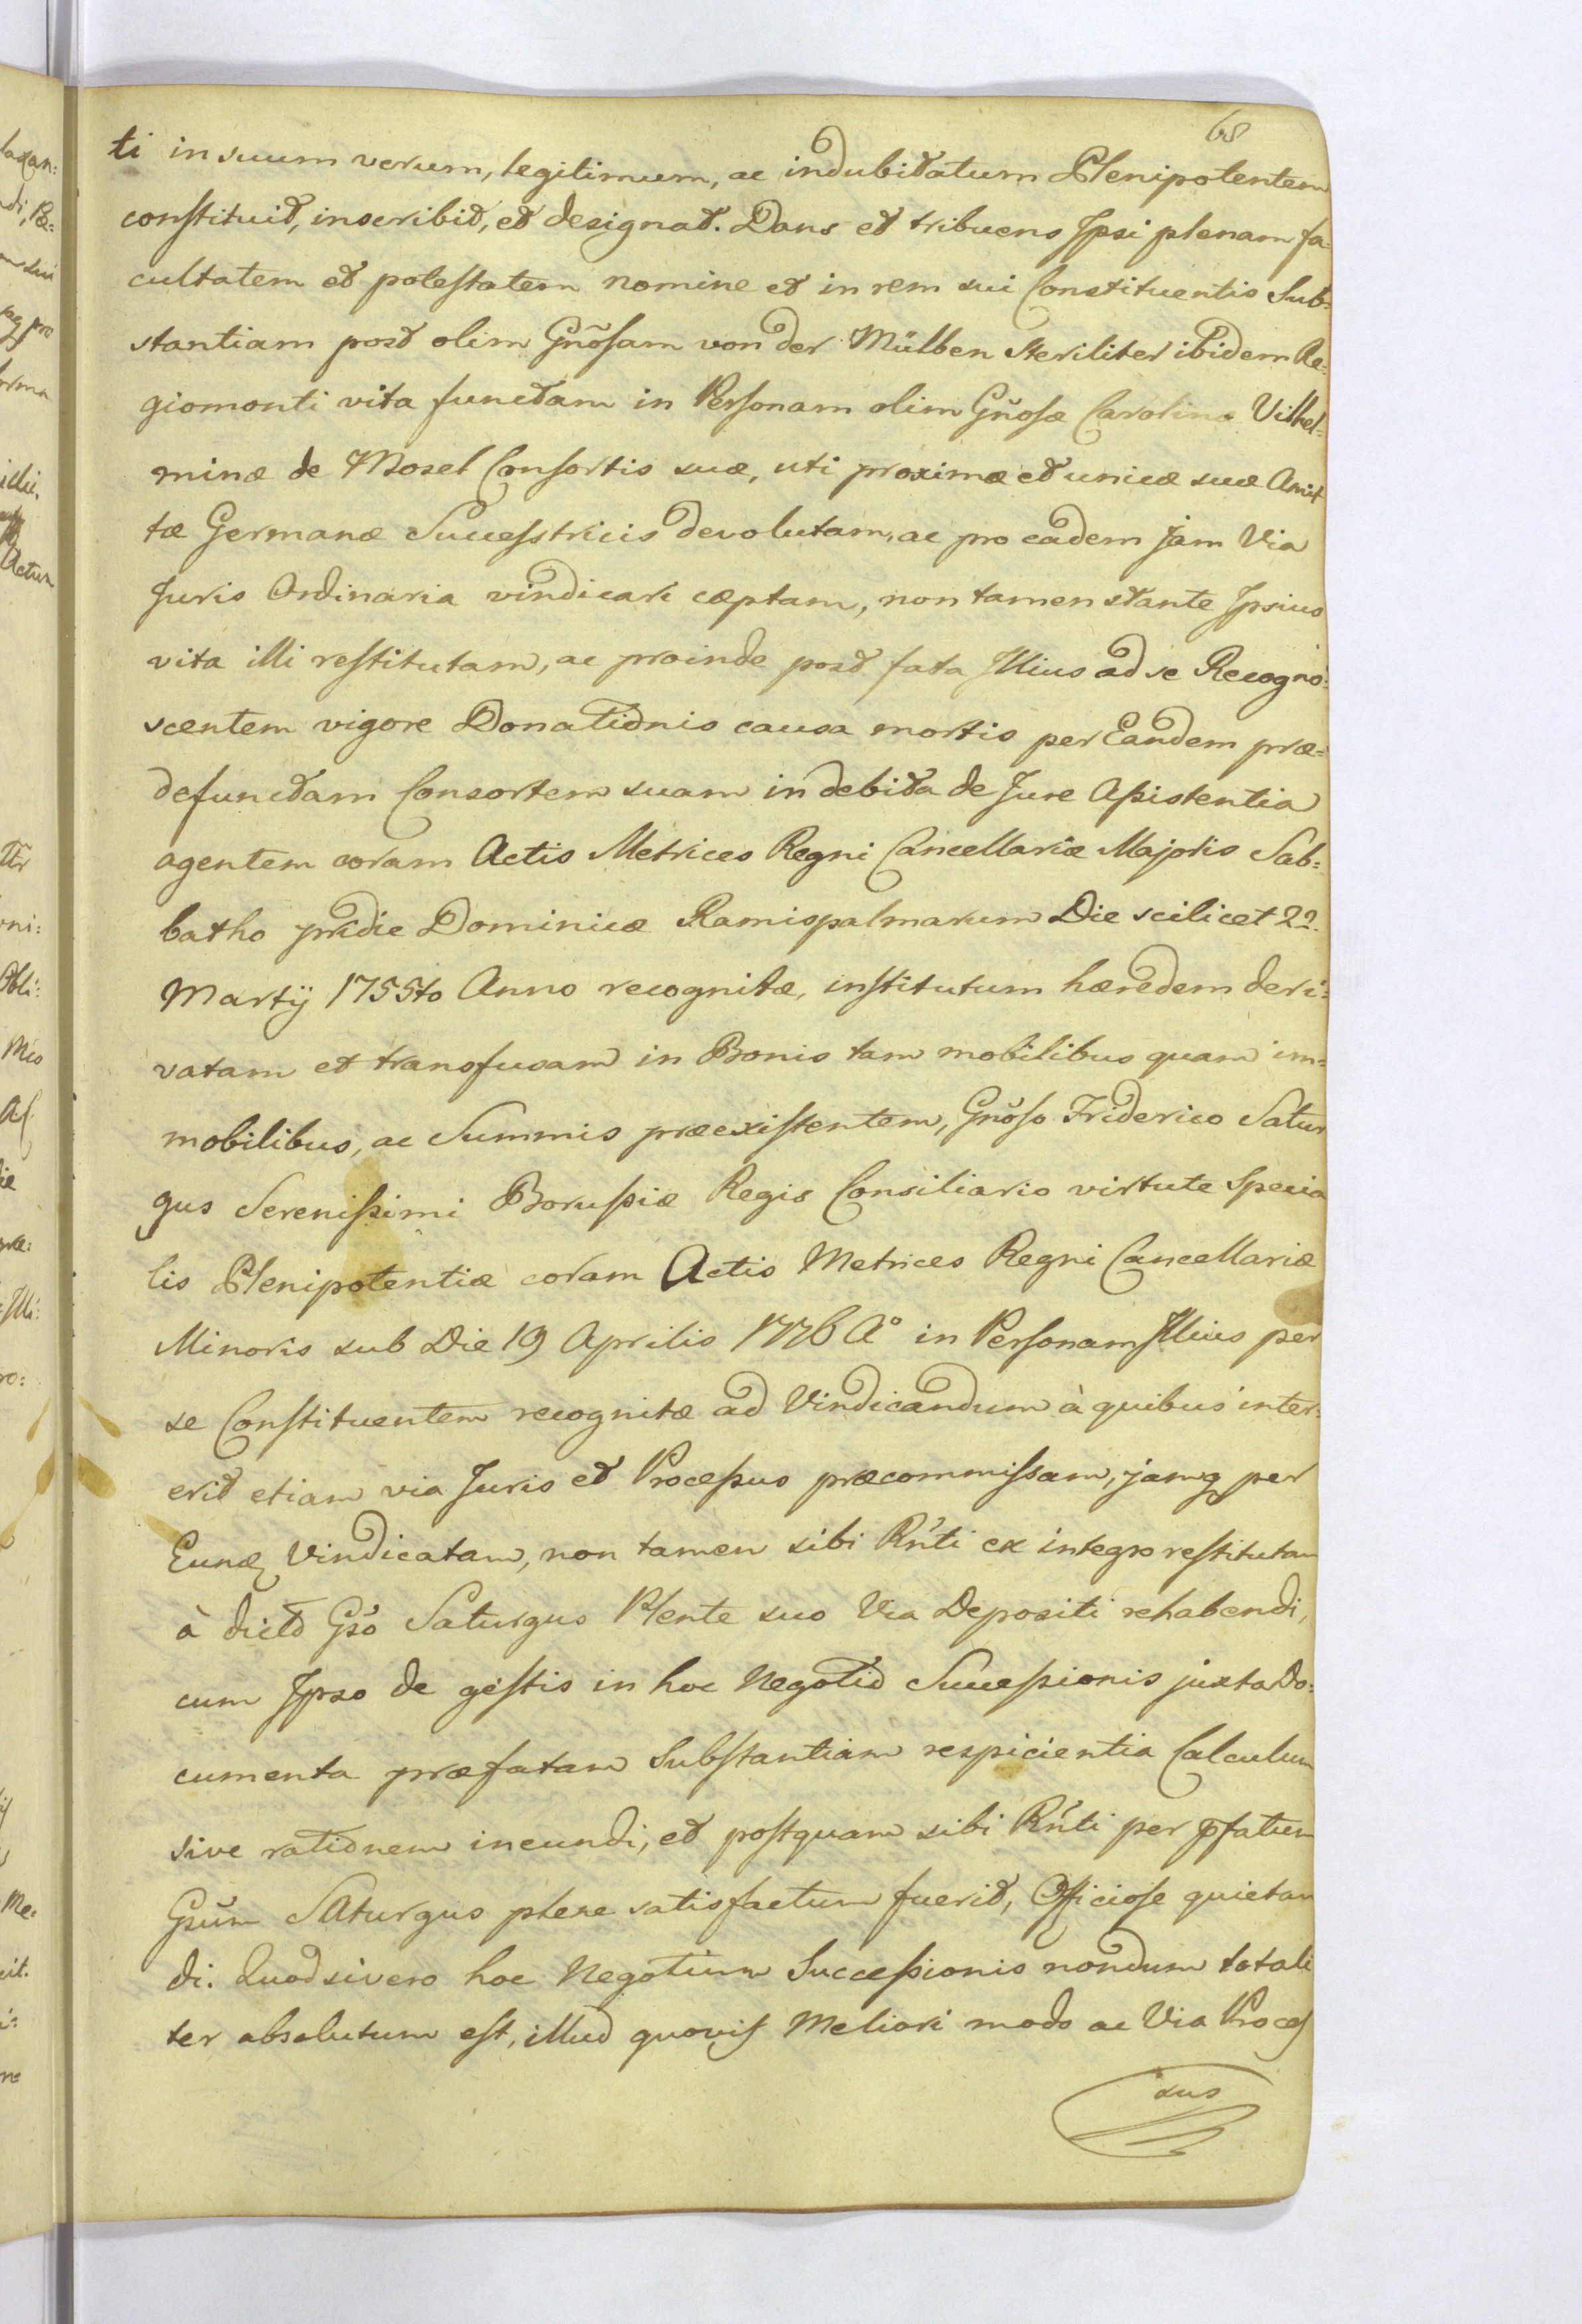 68
ti in suum verum, legitimum, ac indubitatum Plenipotentem
constituit, inscribit, et designat. Dans et tribuens Ipsi plenam fa-
cultatem et potestatem nomine et in rem sui Constituentis Sub-
stantiam post olim Gñosam von der Mülben steriliter ibidem Re-
giomonti vita functam in Personam olim Gñosæ Carolinæ Vilhel-
minæ de Mosel Consortis suæ, uti proximæ et unicæ suæ Amit
tæ Germanæ Successtricis devolutam, ac pro eadem jam Via
Juris Ordinaria vindicari cæptam, non tamen stante Ipsius
vita illi restitutam, ac proinde post fata Illius ad se Recogno-
scentem vigore Donationis causa mortis per Eandem præ=
defunctam Consortem suam in debita de Jure Assistentia
agentem coram Actis Metrices Regni Cancellariæ Majoris Sab=
batho pridie Dominicæ Ramispalmarum Die scilicet 22.
Martij 1755to Anno recognitæ, institutum hæredem deri=
vatam et transfusam in Bonis tam mobilibus quam im=
mobilibus, ac Summis præexistentem, Gñoso Friderico Satur
gus Serenissimi Borussiæ Regis Consiliario virtute Specia
lis Plenipotentiæ coram Actis Metrices Regni Cancellariæ
Minoris sub Die 19 Aprilis 1776 A° in Personam Illius per
se Constituentem recognitæ ad Vindicandum à quibus inter-
erit etiam via Juris et Processus præcommissam, jamq per
Eund Vindicatam, non tamen sibi Rñti ex integro restitutam
à dicto Gso Saturgus Plente suo Via Depositi rehabendi,
cum Ipso de gestis in hoc Negotio Successionis juxta Do=
cumenta præfatam Substantiam respicientia Calculum
sive rationem ineundi, et postquam sibi Rñti per pfatum
Gsum Saturgus plene satisfactum fuerit, Officiose quietan
di. Quodsivero hoc Negotium Successionis nondum totali
ter absolutum est, illud quovis Meliori modo ac Via Proces
sus